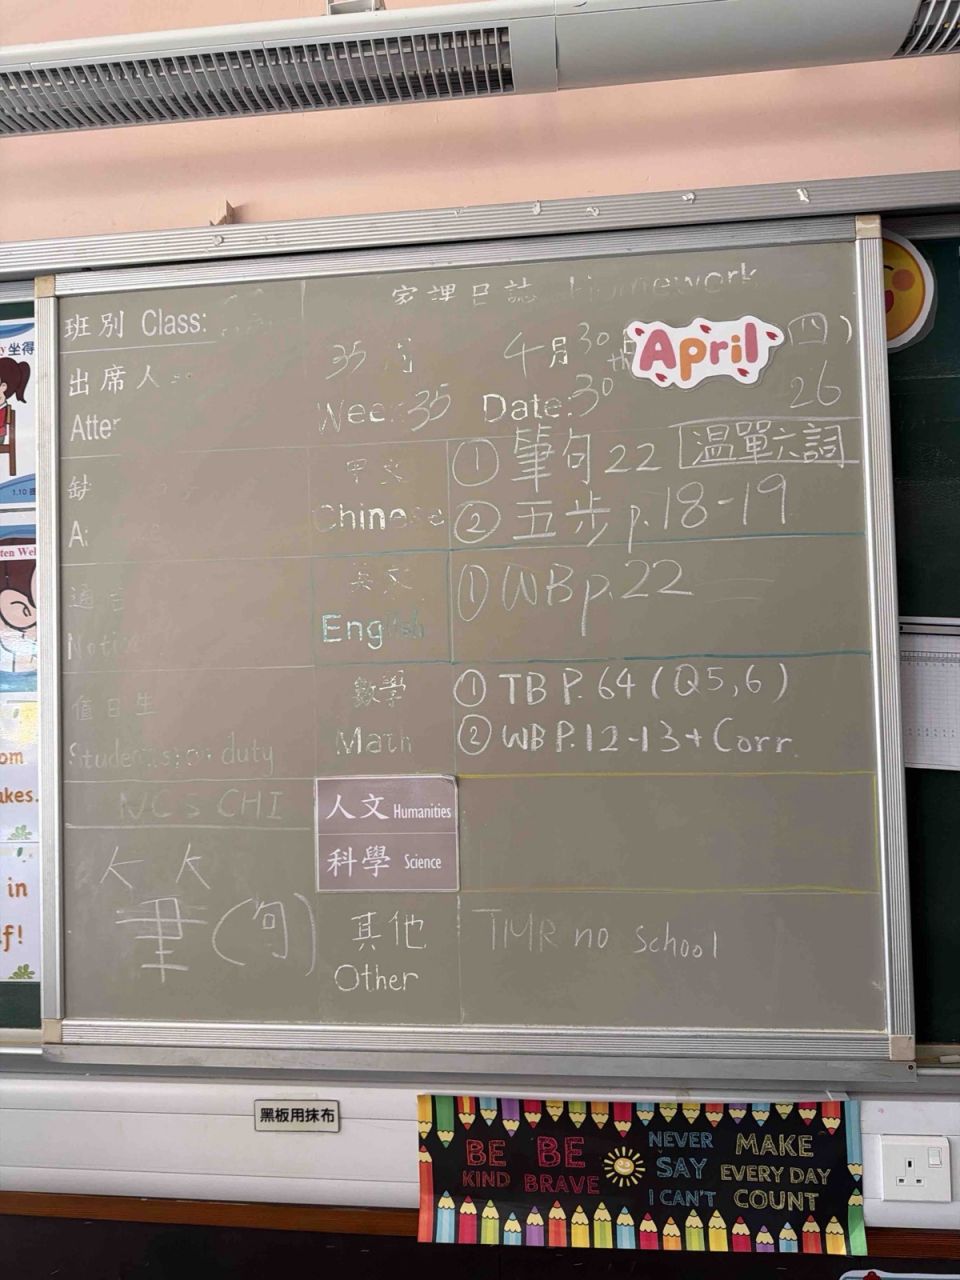 家課日誌 Homework
班別 Class:
35 周 4月30 April (四)
出席人
Week:35 Date:30th 26
中文 Chinese
① 筆句 22 温單六詞
② 五步 p.18-19
英文 English
① WB p.22
通告
Notice
數學 Math
① TB P.64 (Q5,6)
② WB P.12-13 + Corr.
值日生
Student(s) on duty
NCS CHI
筆(句)
人文 Humanities
科學 Science
其他 Other
TMR no school
黑板用抹布
BE KIND
BE BRAVE
NEVER SAY I CAN'T
MAKE EVERY DAY COUNT
坐得
1.10
ten Wel
om
akes.
in
f!